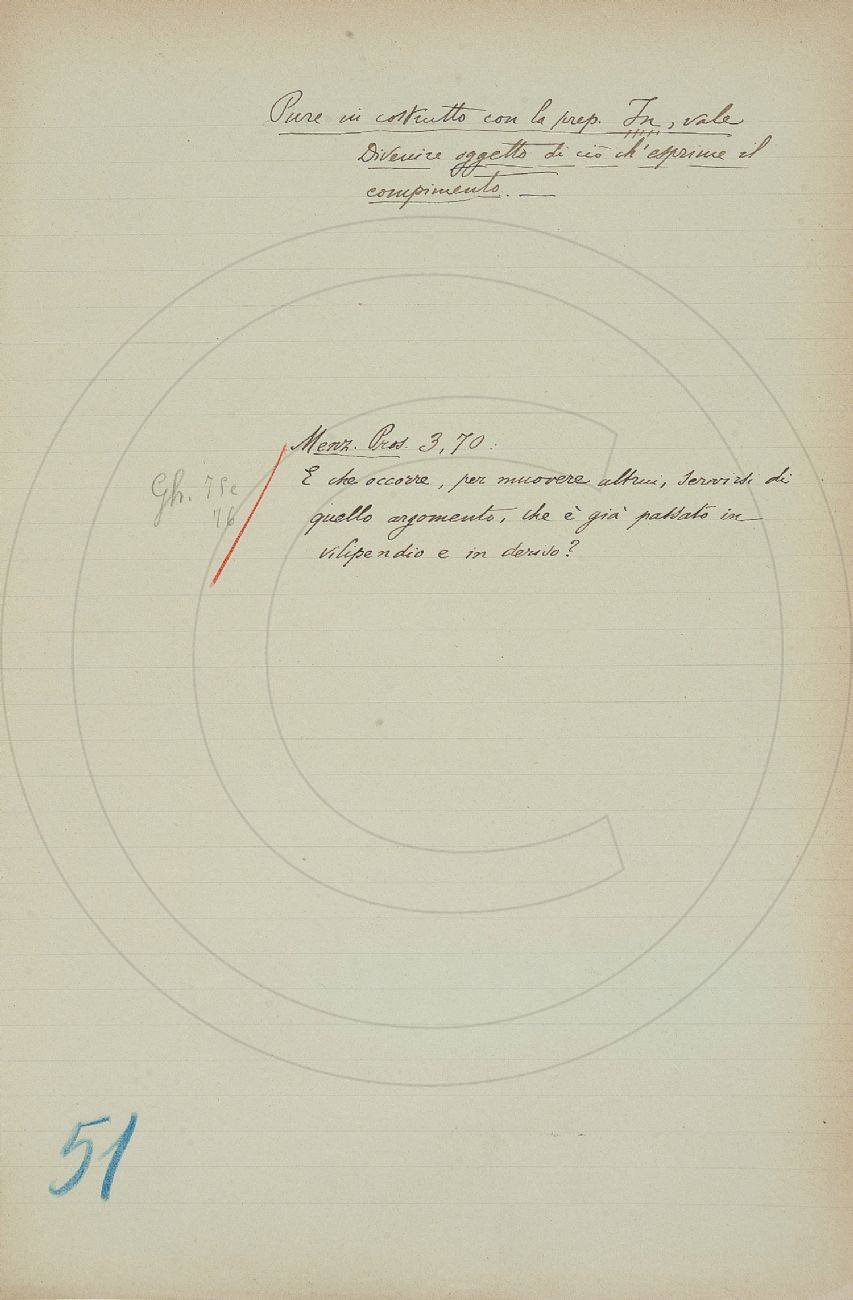 Pure in costrutto con la prep. In, vale
Divenire oggetto di ciò ch'esprime il
compimento. —
Menz. Pros. 3, 70:
E che occorre, per muovere altrui, servirsi di
Gh. 75e
quello argomento, che è già passato in
76
vilipendio e in deriso?
51